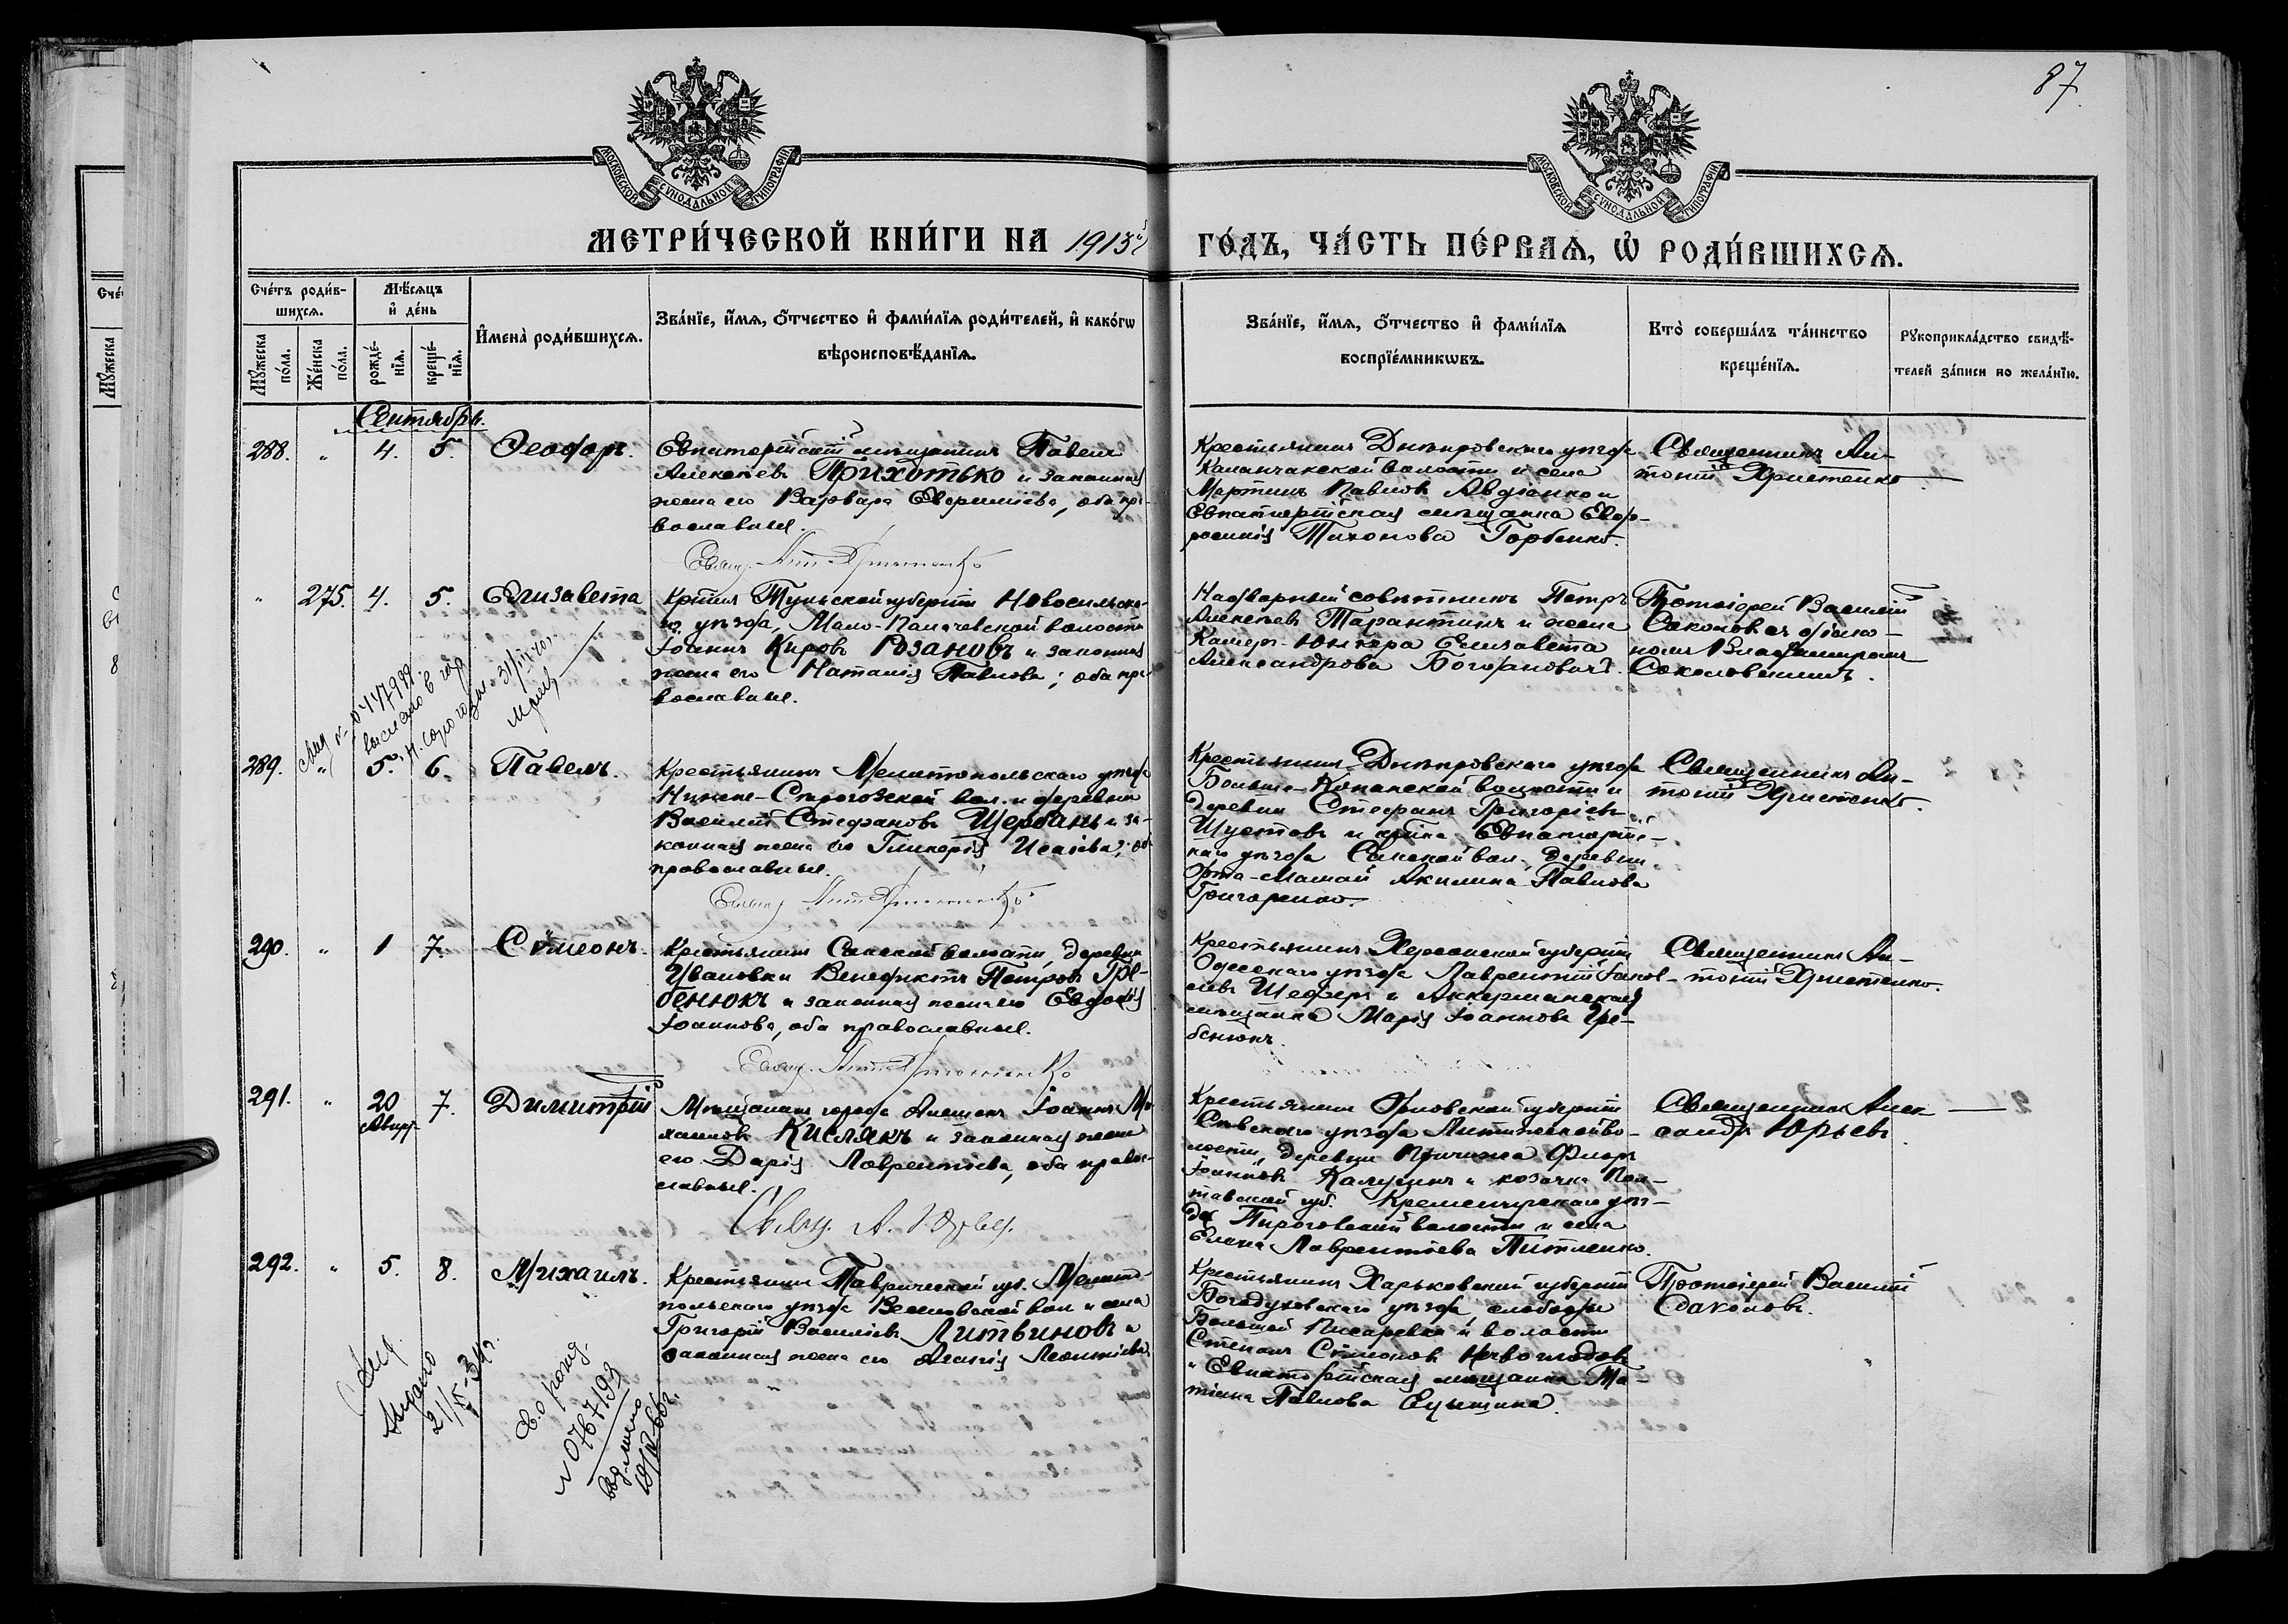 87.
МОСКОВСКОЙ СѴНОДАЛЬНОЙ ТИПОГРАФІИ
МОСКОВСКОЙ СѴНОДАЛЬНОЙ ТИПОГРАФІИ
МЕТРИ́ЧЕСКОЙ КНИ́ГИ НА 1913й ГО́ДЪ, ЧА́СТЬ ПЕ́РВАѦ, Ѡ҆ РОДИ́ВШИХСѦ.
Сче́тъ роди́в-
шихсѧ.
Мꙋ́жеска
по́ла.
Же́нска
по́ла.
Мѣ́сѧцъ
и҆ де́нь
рожде́-
нїѧ.
креще́-
нїѧ.
И҆мена̀ роди́вшихсѧ.
Зва́нїе, и҆́мѧ, ѻ҆́тчество и҆ фами́лїѧ роди́телей, и҆ како́гѡ
вѣроисповѣ́данїѧ.
Зва́нїе, и҆́мѧ, ѻ҆́тчество и҆ фами́лїѧ
воспрїе́мникѡвъ.
Кто̀ соверша́лъ та́инство
креще́нїѧ.
Рꙋкоприкла́дство свидѣ́-
телей за́писи по жела́нїю.
Сентябрь.
288. " 4. 5. Ѳеодоръ.
Евпаторійскій мѣщанинъ Павелъ
Алексѣевъ Прихотько и законная
жена его Варвара Евфиміева, оба пра-
вославные.
Свящ. Ант. Христенко
Крестьянинъ Днѣпровскаго уѣзда
Каланчакской волости и села
Мартинъ Павловъ Авдѣенко и
Евпаторійская мѣщанка Евф-
росинія Тихонова Горбенко.
Священникъ Ан-
тоній Христенко
" 275. 4. 5. Елизавета
Крт-нъ Тульской губерніи Новосильска-
го уѣзда, Мало- волости
Іоаннъ Кировъ Розановъ и законная
жена его Наталія Павлова; оба пра-
вославные.
Надворный совѣтникъ Петръ
Алексѣевъ Тарантинъ и жена
Камеръ-Юнкера Елизавета
Александрова Богдановичъ.
Протоіерей Василій
Соколовъ съ діако-
номъ Владиміромъ
Соколовскимъ.
№ 0447999
31/
289. " 5. 6. Павелъ.
Крестьянинъ Мелитопольскаго уѣзда
Нижне-Сѣрогозской вол. и деревни
Василій Стефановъ Щербань и за-
конная жена его Гликерія Исаіева; оба
православные.
Свящ. Ант. Христенко
Крестьянинъ Днѣпровскаго уѣзда
Больше-Копанской волости и
деревни Стефанъ Григоріевъ
Шустовъ и кр-нка Евпаторійс-
каго уѣзда Сакской вол. деревни
Орта-Мамай Акилина Павлова
Григоренко.
Священникъ Ан-
тоній Христенко.
290. " 1 7. Сѵмеонъ.
Крестьянинъ Сакской волости, деревни
Ивановки Венедиктъ Петровъ Гре-
бенюкъ и законная жена его Евдокія
Іоаннова, оба православные.
Свящ. Ант. Христенко
Крестьянинъ Херсонской губерніи
Одесскаго уѣзда Лаврентій Іаков-
левъ Шеферъ и Аккерманская
мѣщанка Марія Іоаннова Гре-
бенюкъ.
Священникъ Ан-
тоній Христенко.
291. " 20 7. Димитрій
Авгу.
Мѣщанинъ города Алешекъ Іоаннъ Ми-
хаиловъ Кислякъ и законная жена
его Дарія Лаврентіева, оба правос-
лавные.
Свящ. А. Юрьевъ.
Крестьянинъ Орловской губерніи
Сѣвскаго уѣзда Литижской во-
лости, деревни Прилѣпа Флоръ
Іоанновъ Калугинъ и козачка Пол-
тавской губ. Кременчугскаго уѣз-
да Пироговской волости и села
Елена Лаврентіева Питленко.
Священникъ Алек
сандръ Юрьевъ
292. " 5. 8. Михаилъ.
Крестьянинъ Таврической губ. Мелито-
польскаго уѣзда Веселовской вол. и села
Григорій Василіевъ Литвиновъ и
законная жена его Агапія Леонтіева
Крестьянинъ Харьковской губерніи
Богодуховскаго уѣзда, слободы
Большой Писаревки и волости
Степанъ Сѵмеоновъ Неволодовъ
и Евпаторійская мѣщанка Та-
тіана Павлова Ельшина.
Протоіерей Василій
Соколовъ.
Св. о рожд.
№ 0767199